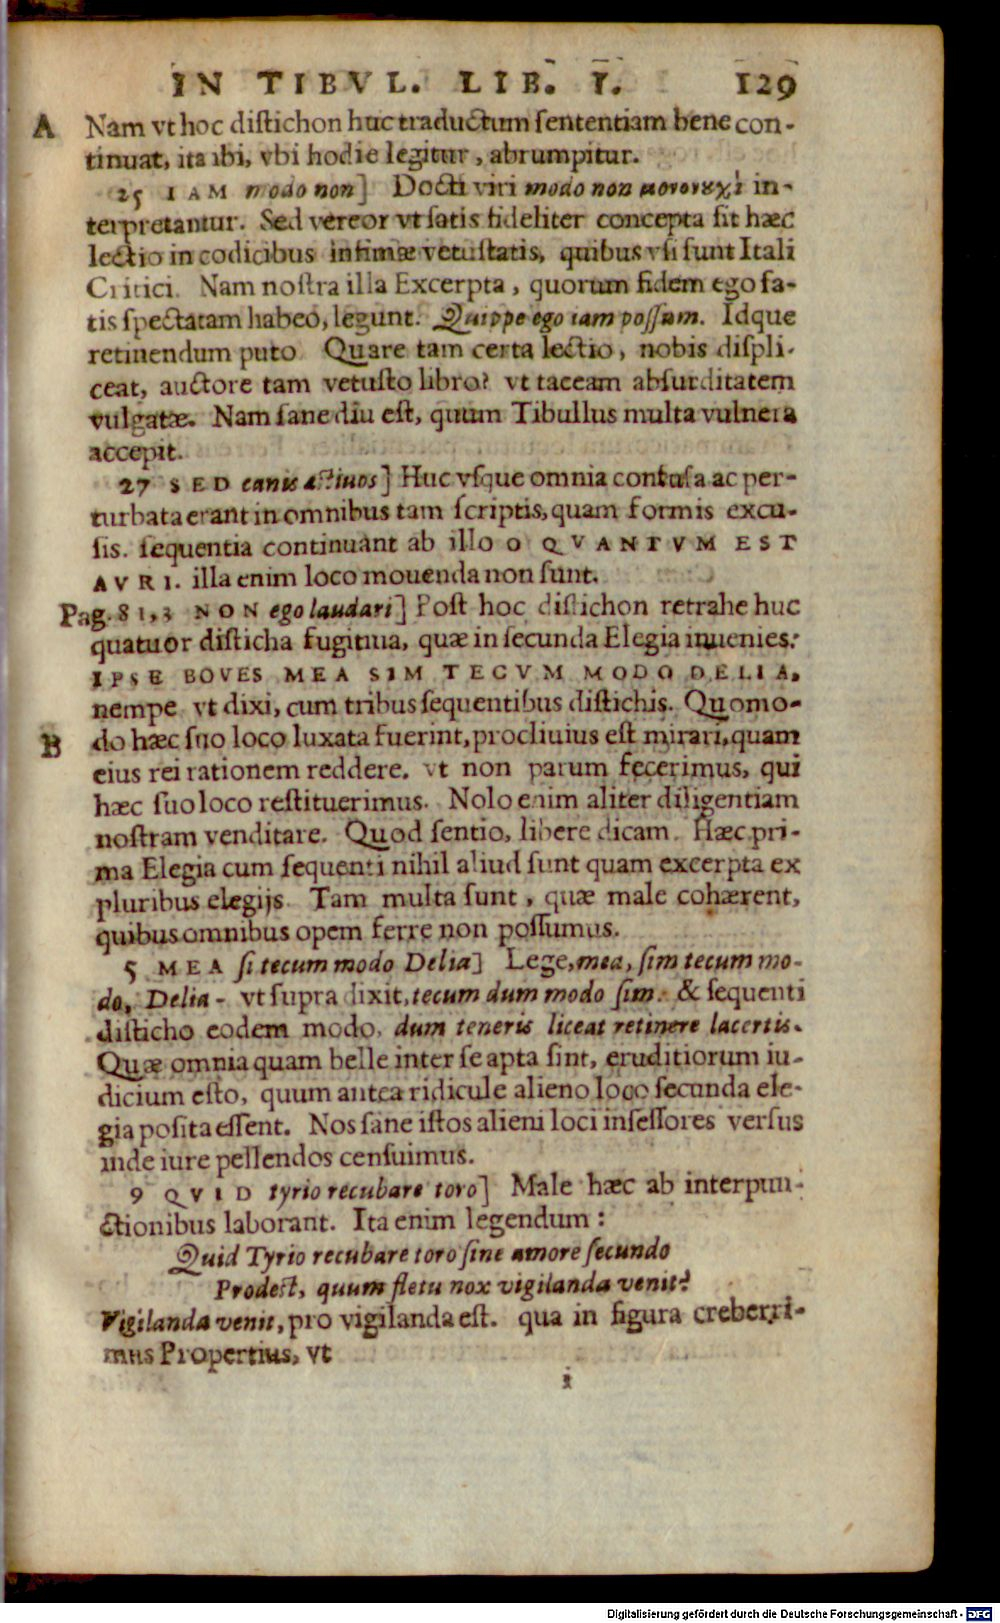 IN TIBVL. LIB. I. 129
A Nam vt hoc distichon huc traductum sententiam bene con-
tinuat, ita ibi, vbi hodie legitur, abrumpitur.
25 IAM modo non] Docti viri modo non μονονυχὶ in-
terpretantur. Sed vereor vt satis fideliter concepta sit hæc
lectio in codicibus infimæ vetustatis, quibus vsi sunt Itali
Critici. Nam nostra illa Excerpta, quorum fidem ego sa-
tis spectatam habeo, legunt. Quippe ego iam possum. Idque
retinendum puto. Quare tam certa lectio, nobis displi-
ceat, auctore tam vetusto libro? vt taceam absurditatem
vulgatæ. Nam sane diu est, quum Tibullus multa vulnera
accepit.
27 SED canis æstiuos] Huc vsque omnia confusa ac per-
turbata erant in omnibus tam scriptis, quam formis excu-
sis. sequentia continuant ab illo O QVANTVM EST
AVRI. illa enim loco mouenda non sunt.
Pag. 81, 3 NON ego laudari] Post hoc distichon retrahe huc
quatuor disticha fugitiua, quæ in secunda Elegia inuenies:
IPSE BOVES MEA SIM TECVM MODO DELIA,
nempe vt dixi, cum tribus sequentibus distichis. Quomo-
B do hæc suo loco luxata fuerint, procliuius est mirari, quam
eius rei rationem reddere. vt non parum fecerimus, qui
hæc suo loco restituerimus. Nolo enim aliter diligentiam
nostram venditare. Quod sentio, libere dicam. Hæc pri-
ma Elegia cum sequenti nihil aliud sunt quam excerpta ex
pluribus elegijs. Tam multa sunt, quæ male cohærent,
quibus omnibus opem ferre non possumus.
5 MEA si tecum modo Delia] Lege, mea, sim tecum mo-
do, Delia - vt supra dixit, tecum dum modo sim. & sequenti
disticho eodem modo, dum teneris liceat retinere lacertis.
Quæ omnia quam belle inter se apta sint, eruditiorum iu-
dicium esto, quum antea ridicule alieno loco secunda ele-
gia posita essent. Nos sane istos alieni loci insessores versus
inde iure pellendos censuimus.
9 QVID tyrio recubare toro] Male hæc ab interpun-
ctionibus laborant. Ita enim legendum:
Quid Tyrio recubare toro sine amore secundo
Prodest, quum fletu nox vigilanda venit?
Vigilanda venit, pro vigilanda est. qua in figura creberri-
mus Propertius, vt
i
Digitalisierung gefördert durch die Deutsche Forschungsgemeinschaft - DFG